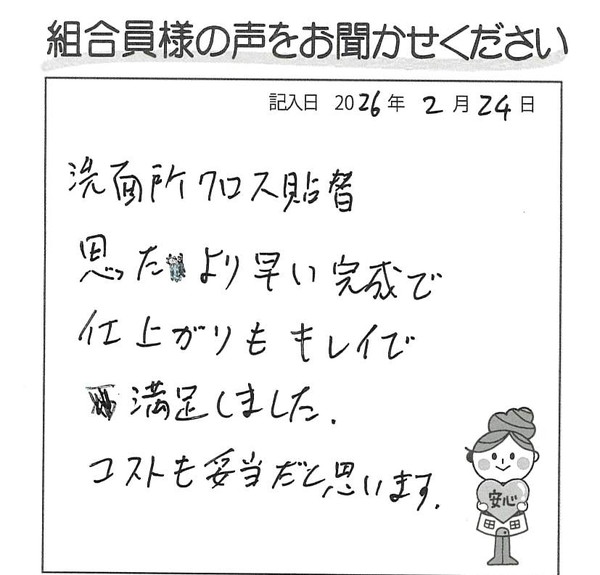 組合員様の声をお聞かせください
記入日 2026年 2月24日
洗面所クロス貼替
思ったより早い完成で
仕上がりもキレイで
満足しました.
コストも妥当だと思います.
安心